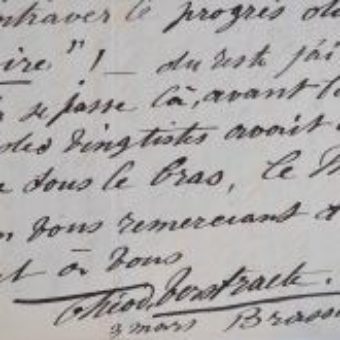 entraver le progrès de
oire" ! _ du reste j'ai
se passe là, avant l
des vingtistes avait
sous le bras, le M
vous remerciant
à vous
Théod. Verstraete.
3 mars Brasse